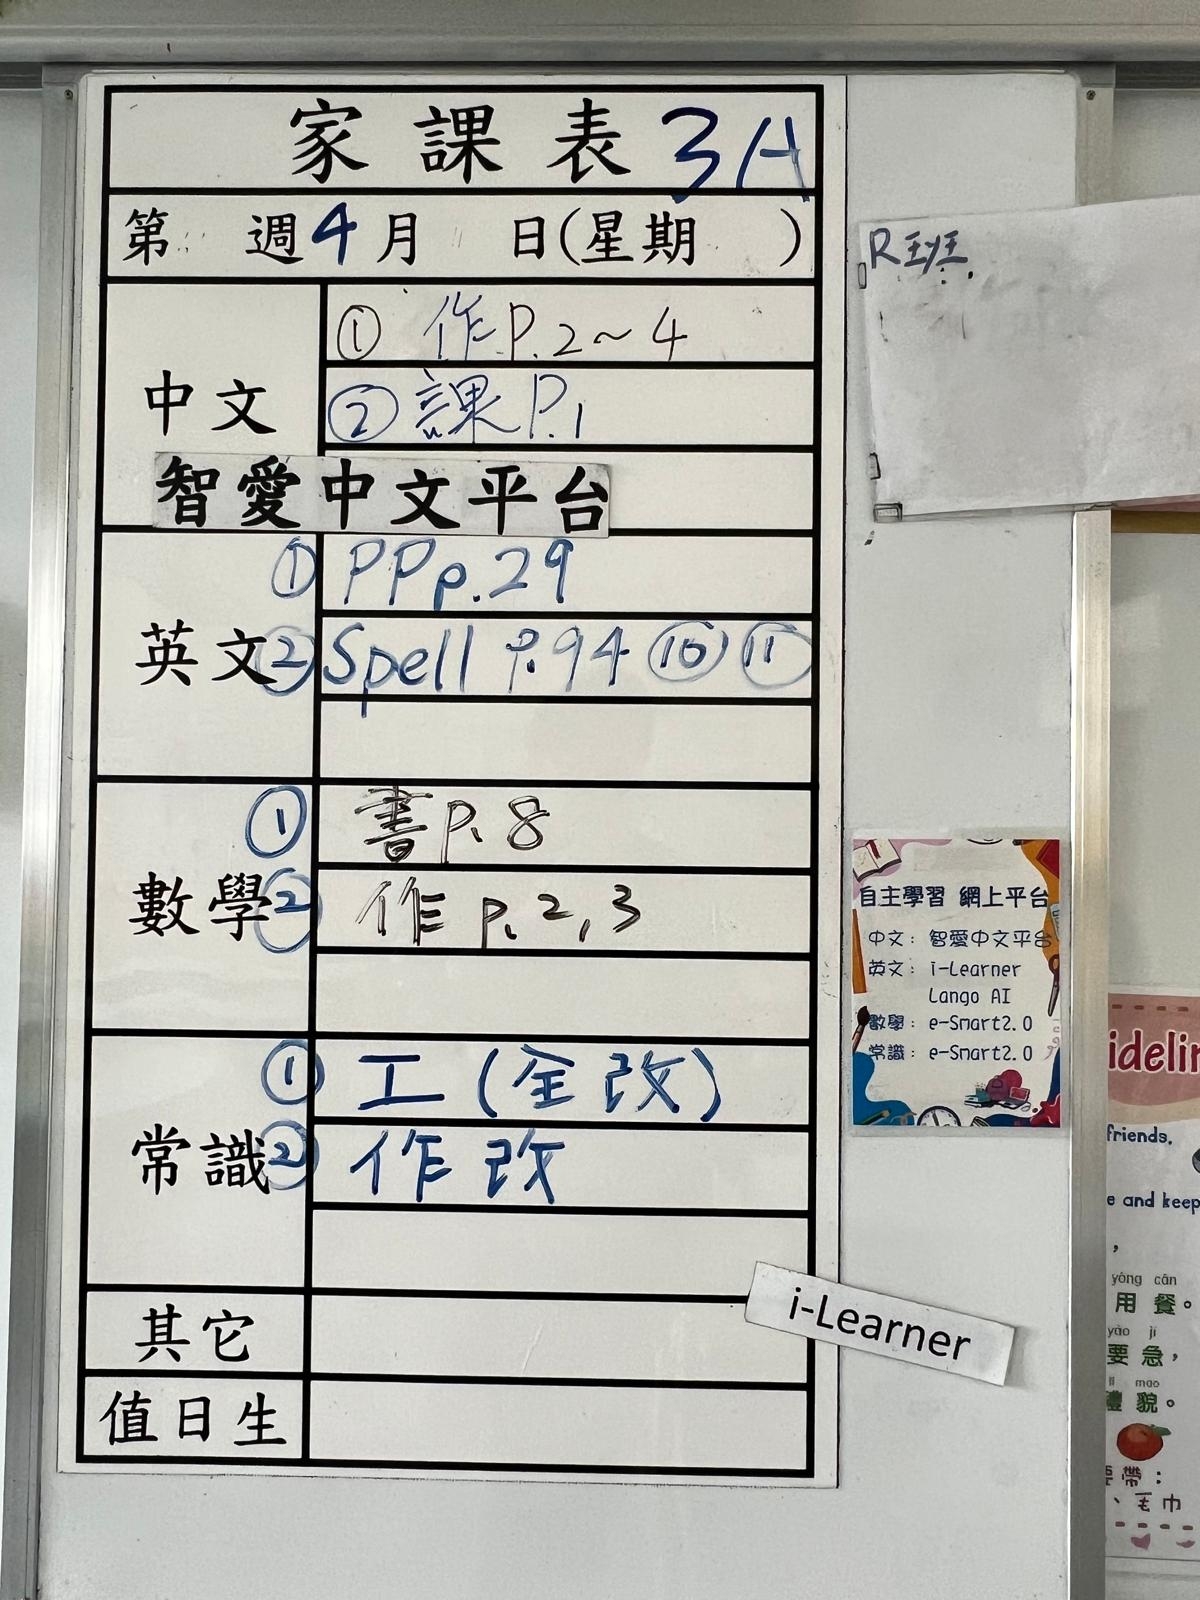 家課表 3A
第 週 4月 日(星期 )
中文
① 作P.2~4
② 課P.1
智愛中文平台
英文
① PP p.29
② Spell P.94 ⑩ ⑪
數學
① 書p.8
② 作p.2,3
常識
① 工(全改)
② 作改
其它
值日生
i-Learner
自主學習 網上平台
中文: 智愛中文平台
英文: i-Learner
Lango AI
數學: e-Smart2.0
常識: e-Smart2.0
friends.
e and keep
,
yòng cān
用餐。
yào jí
要急,
mào
禮貌。
要帶:
、毛巾